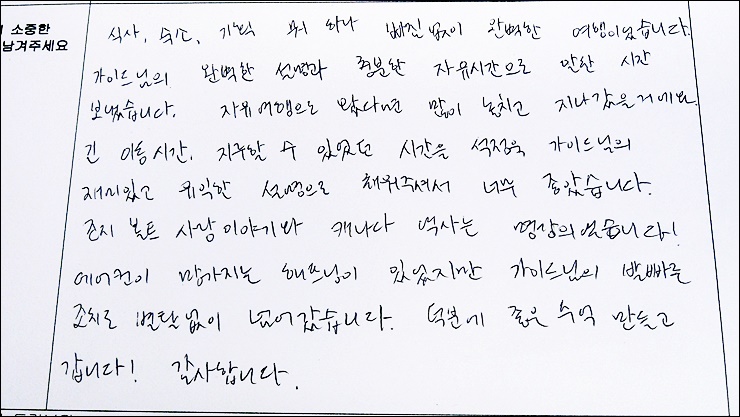 소중한
남겨주세요
식사, 숙소, 기타 뭐 하나 빠진 없이 완벽한 여행이었습니다.
가이드님의 완벽한 설명과 충분한 자유시간으로 알찬 시간
보냈습니다. 자유여행으로 왔다면 많이 놓치고 지나갔을거에요
긴 이동시간, 지루할 수 있었던 시간을 석정욱 가이드님의
재미있고 유익한 설명으로 채워주셔서 너무 좋았습니다.
존지 볼트 사랑이야기와 캐나다 역사는 명강의였습니다!
에어컨이 망가지는 해프닝이 있었지만 가이드님의 발빠른
조치로 별탈없이 넘어갔습니다. 덕분에 좋은 추억 만들고
갑니다! 감사합니다.